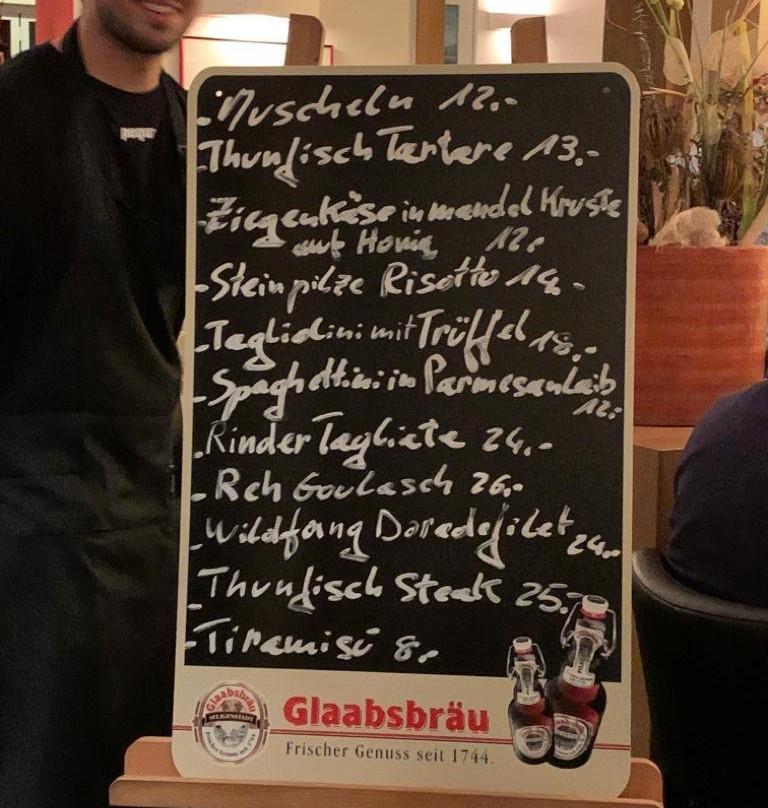 - Muscheln 12.-
- Thunfisch Tartere 13.-
- Ziegenkäse in mandel Kruste
auf Honig 12.
- Steinpilze Risotto 14.-
- Tagliolini mit Trüffel 18.-
- Spaghettini in Parmesanlaib
12.-
- Rinder Tagliata 24.-
- Reh Goulasch 26.-
- Wildfang Doradefilet 24.-
- Thunfisch Steak 25.-
- Tiramisú 8.-
Glaabsbräu
SELIGENSTADT
Glaabsbräu
Frischer Genuss seit 1744.